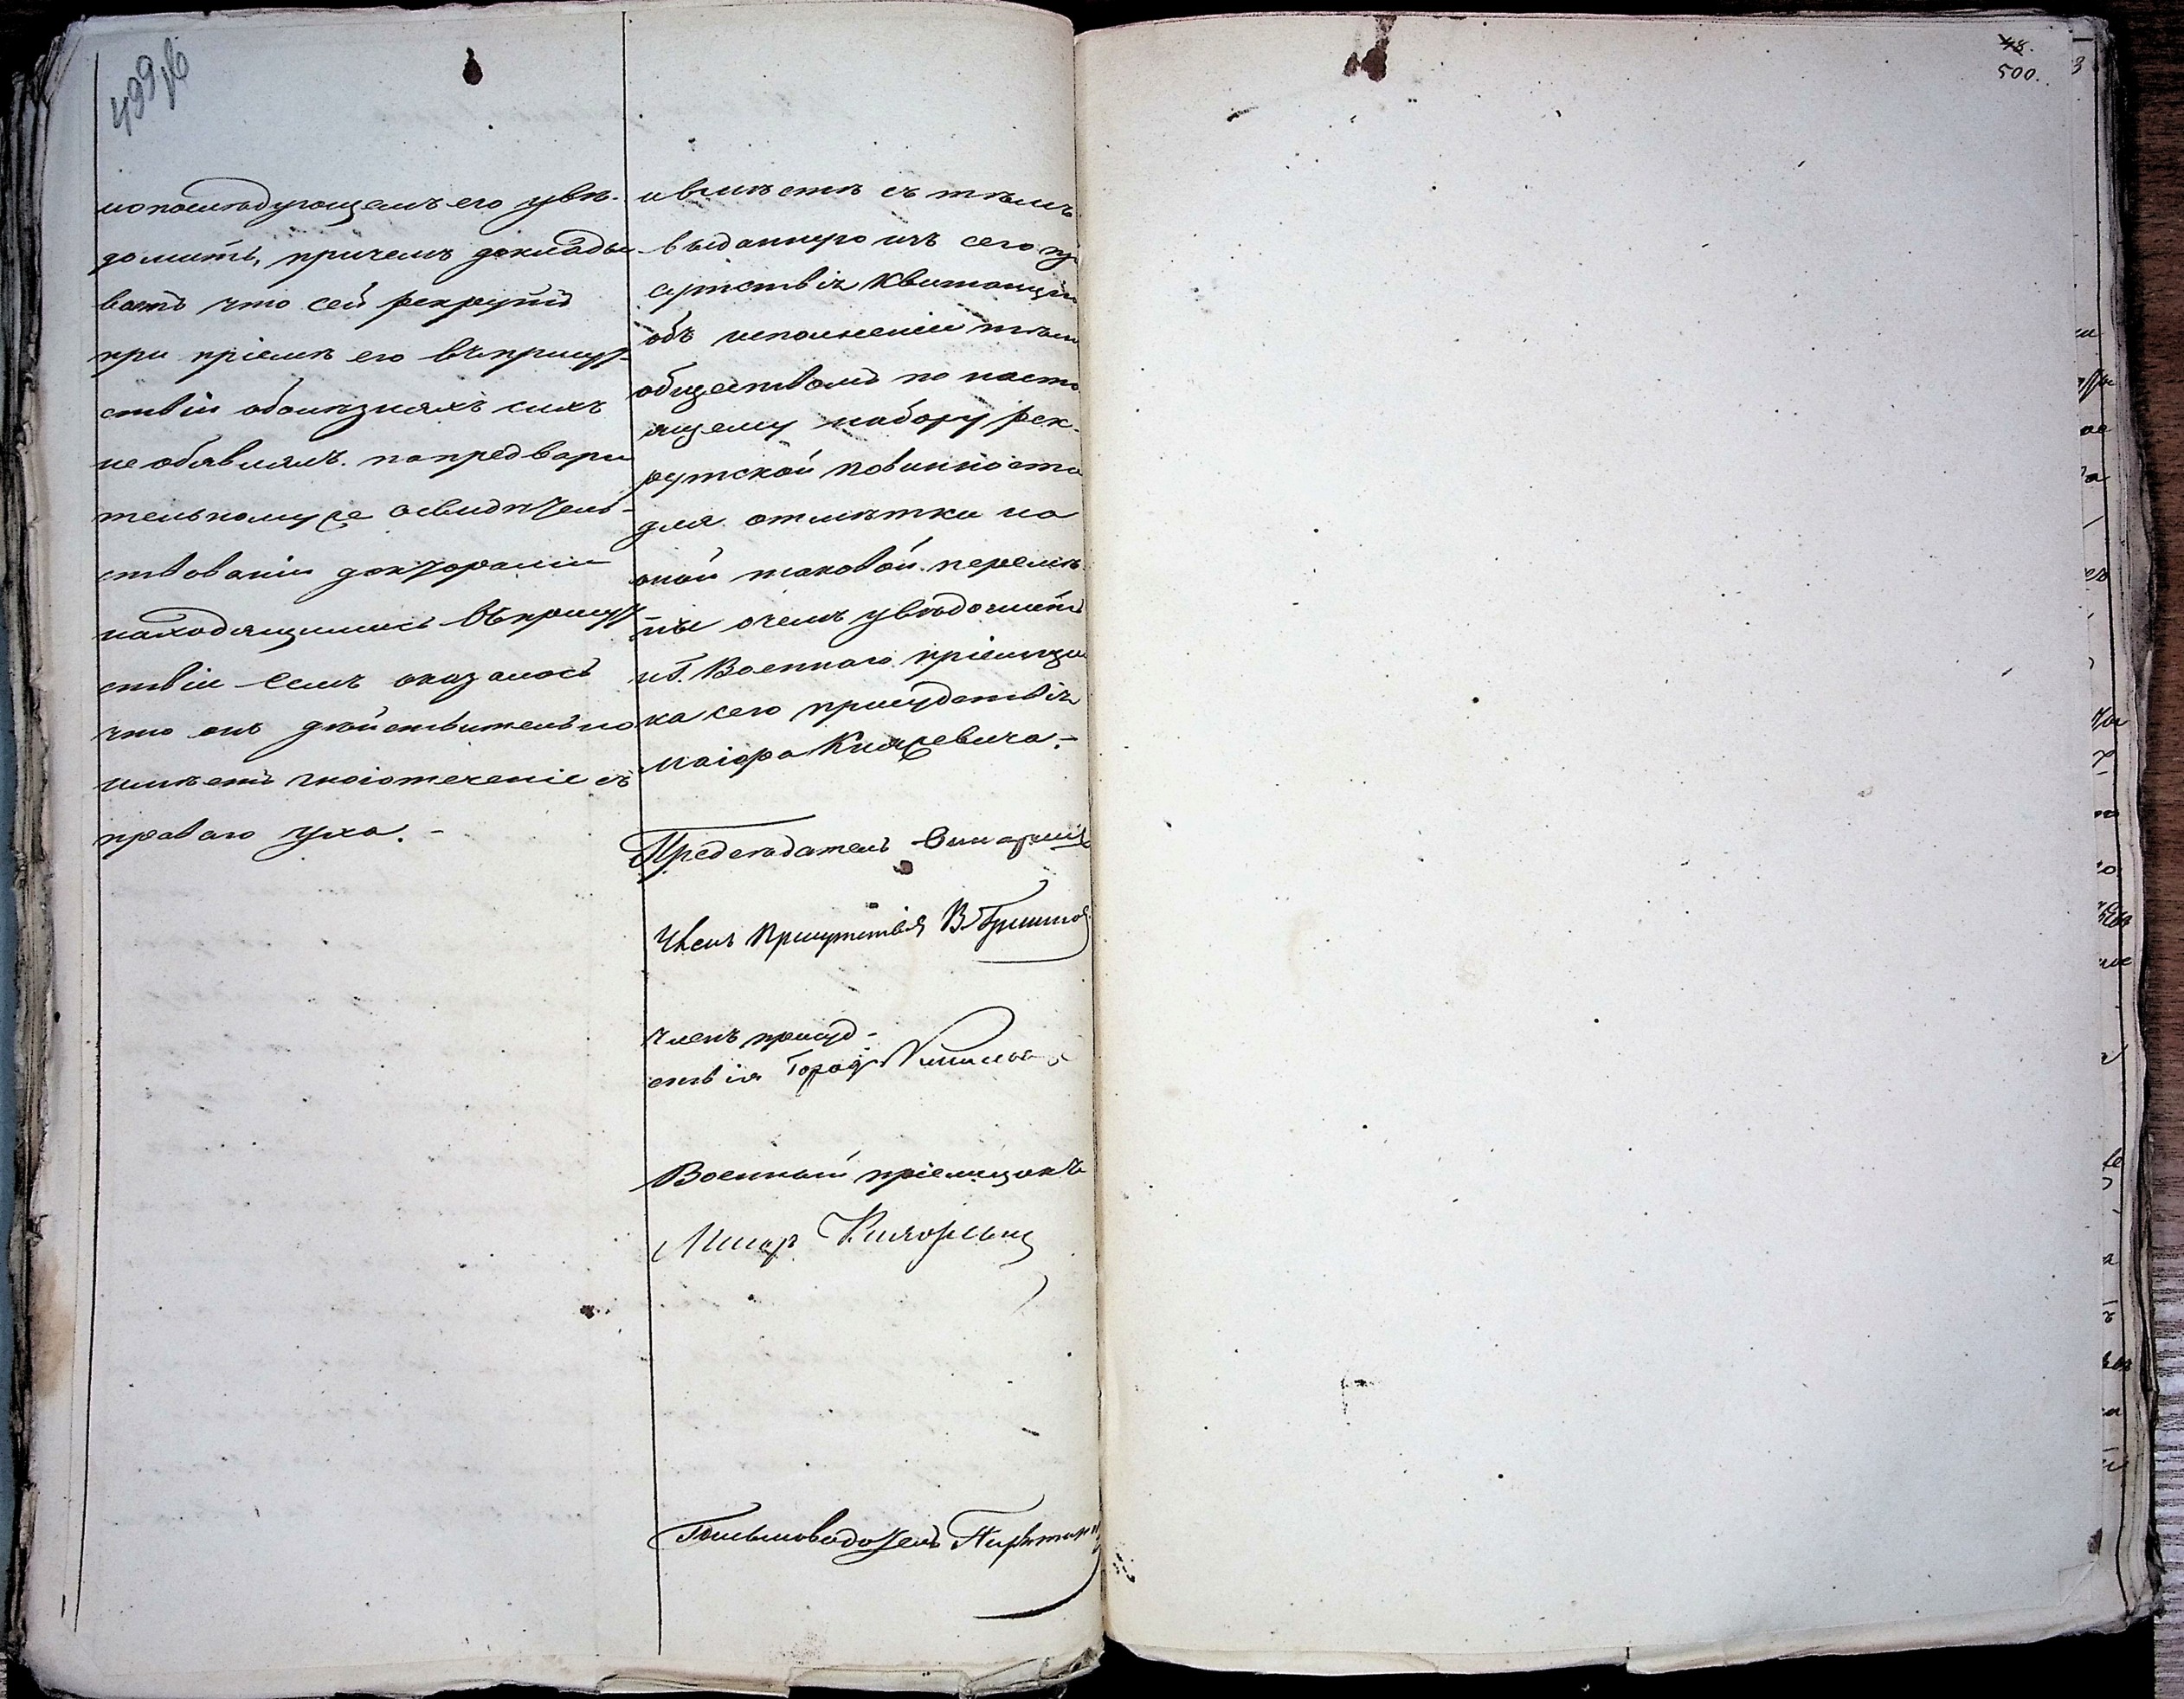 499 об
мопослѣдующемъ его увѣ-
домить, причемъ доклады
ваетъ что сей рекрутъ
при пріемѣ его въ присут-
ствіи оболѣзняхъ сихъ
необъявлялъ. попредвари
тельному же освидѣтель-
ствованіи докторами
находящимись въ присут
ствіи семъ оказалось
что онъ дѣйствительно
имѣетъ гноіотеченіе съ
праваго уха. -
и вмѣстѣ съ тѣмъ
выданную изъ сего пр
сутствія квитанцію
объ исполненіи тѣмъ
обществомъ по насто
ящему набору рек-
рутской повинности
для отмѣтки на
оной таковой перемѣ
ны очемъ увѣдомить
и Г. Военнаго пріемщи
ка сего присудствія
Маіора Княжевича. -
Предсѣдатель
Членъ Присутствія
Членъ присуд-
ствія Город.
Военный пріемщикъ
Маіоръ Княжевич
Письмоводитель
48.
500.